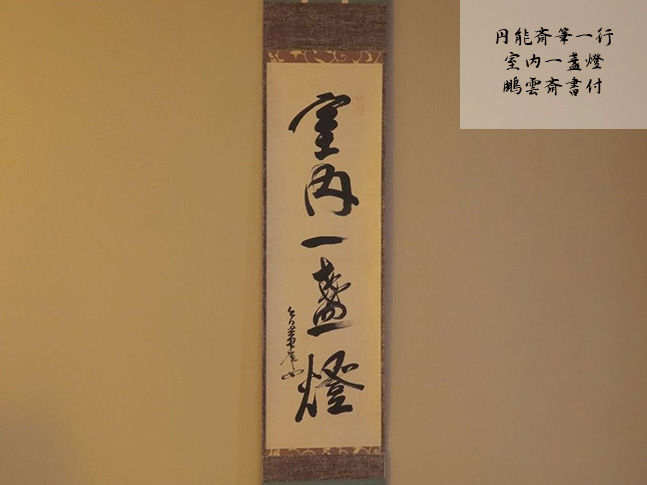 円能斎筆一行
室内一盞燈
鵬雲斎書付
室内一盞燈